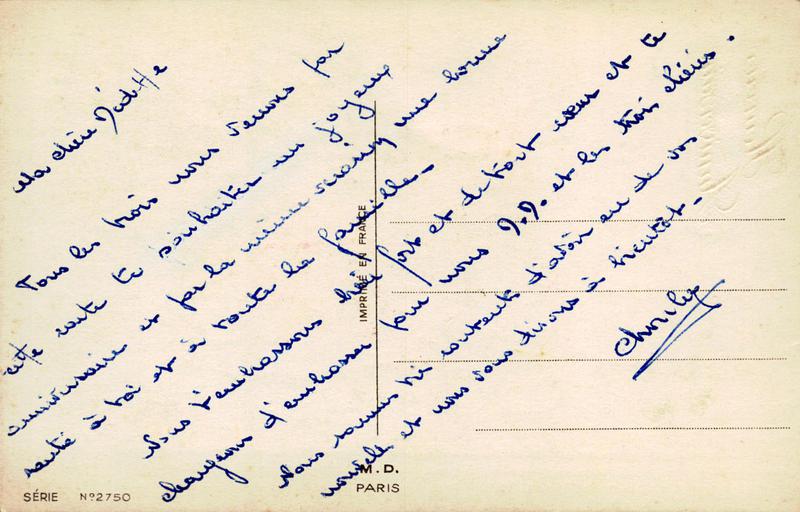 Ma chère Odette
Tous les trois nous venons par
cette carte te souhaiter un joyeux
anniversaire et par la même occasion une bonne
santé à toi et à toute la famille.
Nous t'embrassons bien fort et de tout cœur et te
chargeons d'embrasser pour nous et les trois chéris.
Nous sommes très contents d'avoir eu de vos
nouvelles et nous vous disons à bientôt.
IMPRIMÉ EN FRANCE
M.D.
PARIS
SÉRIE Nº2750